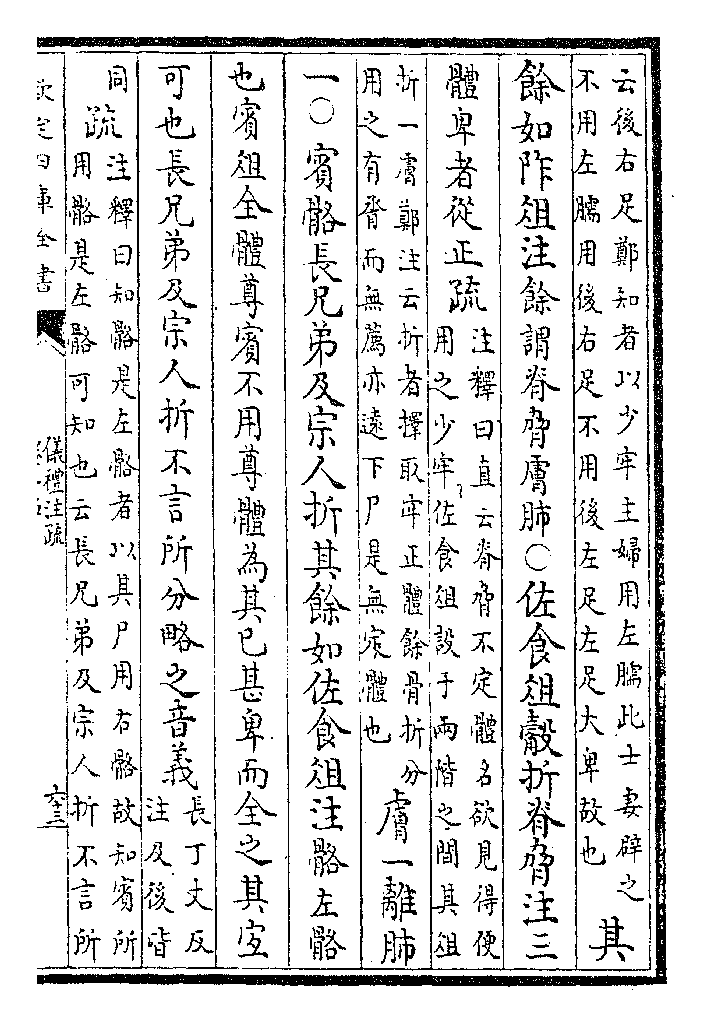 云後右足鄭知者以少牢主婦用左臑此士妻辟之
不用左臑用後右足不用後左足左足大卑故也
其
餘如阼俎注餘謂脊脅膚肺○佐食俎觳折脊脅注三
體卑者從正疏
注釋曰直云脊脅不定體名欲見得便
用之少牢佐食俎設于兩階之間其俎
折一膚鄭注云折者擇取牢正體餘骨折分
用之有脀而無薦亦遠下尸是無定體也
膚一離肺
一○賓骼長兄弟及宗人折其餘如佐食俎注骼左骼
也賓俎全體尊賓不用尊體為其已甚卑而全之其宜
可也長兄弟及宗人折不言所分略之音義
長丁丈反
注及後皆
同
疏
注釋曰知骼是左骼者以其尸用右骼故知賓所
用骼是左骼可知也云長兄弟及宗人折不言所
欽定四庫全書
儀禮注疏
六十三